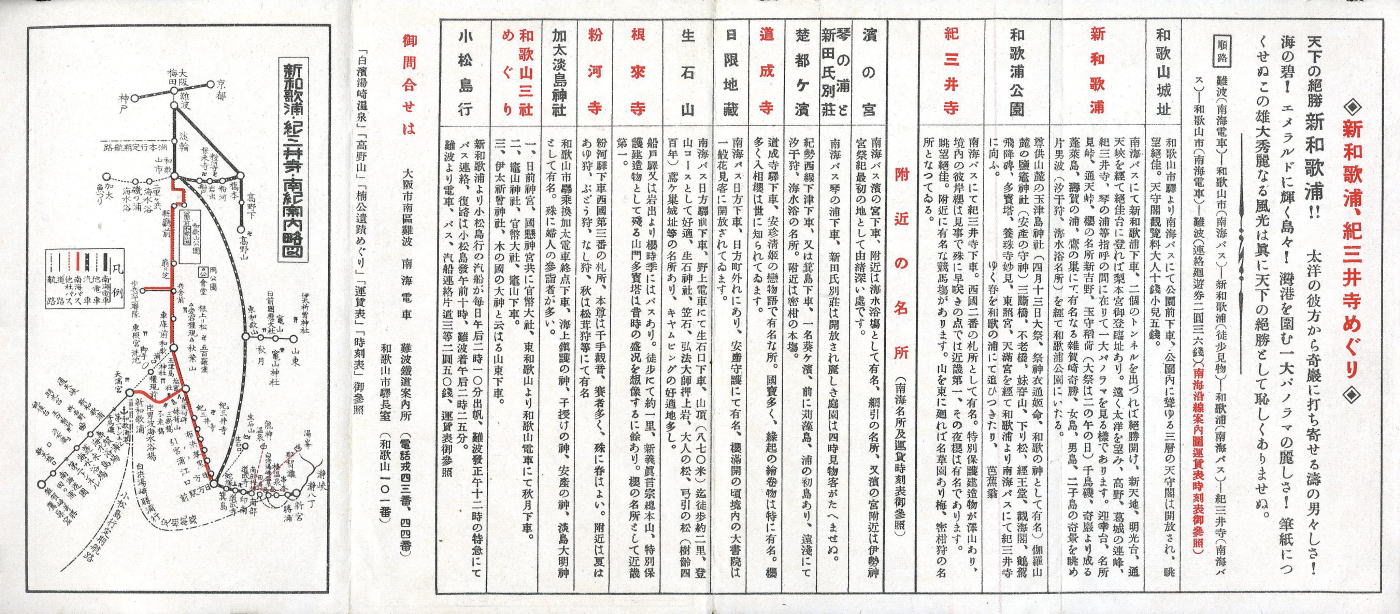 ◈新和歌浦、紀三井寺めぐり◈
天下の絶勝 新和歌浦!! 太洋の彼方から奇巖に打ち寄せる濤の男々しさ!
海の碧! エメラルドに輝く島々! 灣港を圍む一大パノラマの麗しさ! 筆紙につ
くせぬこの雄大秀麗なる風光は眞に天下の絶勝として恥しくありませぬ。
順路
難波(南海電車)―和歌山市(南海バス)―新和歌浦(徒歩見物)―和歌浦(南海バス)―紀三井寺(南海バ
ス)―和歌山市(南海電車)―難波(連絡廻遊券二圓三六錢)(南海沿線案内圖運賃表時刻表御參照)
和歌山城址
和歌山市驛より南海バスにて公園前下車、公園内に聳ゆる三層の天守閣は開放され、眺
望絶佳。天守閣觀覽料大人十錢小兒五錢。
新和歌浦
南海バスにて新和歌浦下車、二個のトンネルを出づれば絶勝開け、新天地、明光台、通
天峽を經て絶佳台に登れば梨本宮御登臨址あり。遠く太洋を望み、高野、葛城の連峰、
紀三井寺、琴の浦等指呼の間に在りて一大パノラマを見る樣であります。迎幸台、名所
見峠、通天橋、櫻の名所新吉野、玉守稻荷(大祭は二の午の日)千鳥磯、奇巖より成る
蓬萊島、聊賀の浦、鷲の巢にて有名なる雜賀崎奇勝、女島、男島、二子島の奇景を眺め
片男波(汐干狩、海水浴名所)を經て和歌浦公園にいたる。
和歌浦公園
尊供山麓の玉津島神社(四月十三日大祭、祭神衣通姫命、和歌の神として有名)伽羅山
麓の鹽竈神社(安産の守神)三斷橋、不老橋、妹背山、下り松、經王堂、觀海閣、鶴駕
飛降磯、多寶塔、養珠寺妙見、東照宮、天滿宮を經て和歌浦より南海バスにて紀三井寺
に向ふ。 ゆく春を和歌の浦にて追ひつきたり、 芭蕉翁
紀三井寺
南海バスにて紀三井寺下車。西國二番の札所として有名。特別保護建造物が澤山あり、
境内の彼岸櫻は見事で殊に早咲きの点では近畿第一、その夜櫻は有名であります。
眺望絶佳。附近に有名な競馬塲があります。山を東に廻れば名草園あり梅、密柑狩の名
所となつてゐる。
附近の名所 (南海名所及運賃時刻表御參照)
濱の宮
南海バス濱の宮下車、附近は海水浴塲として有名、網引の名所、又濱の宮附近は伊勢神
宮祭祀最初の地として由緖深い處です。
琴の浦と
新田氏別莊
南海バス琴の浦下車、新田氏別莊は開放され麗しき庭園は四時見物客がたへませぬ。
楚都ケ濱
紀勢西線下津下車、又は箕島下車、一名葵ケ濱、前に苅藻島、浦の初島あり、遠淺にて
汐干狩、海水浴の名所。附近は密柑の本塲。
道成寺
道成寺驛下車、安珍淸姫の戀物語で有名な所。國寶多く、緣起の繪卷物は特に有名。櫻
多く入相櫻は世に知られてゐます。
日限地藏
南海バス日方下車、日方町外れにあり、安産守護にて有名、櫻滿開の頃境内の大書院は
一般花見客に開放されてゐます。
生石山
南海バス日方驛前下車、野上電車にて生石口下車、山頂(八七〇米)迄徒歩約二里、登
山コースとして好適、生石神社、笠石、弘法大師押上岩、大人の松、弓引の松(樹齡四
百年)鳶ケ巢城址等の名所あり、キヤムピングの好適地多し。
根來寺
船戸驛又は岩出より櫻時季にはバスあり。徒歩にて約一里、新義眞言宗總本山、特別保
護建造物として殘る山門多寶塔は昔時の盛況を想像するに餘あり。櫻の名所として近畿
第一。
粉河寺
粉河驛下車西國第三番の札所、本尊は千手觀音、賽者多く、殊に春はよい。附近は夏は
あゆ狩、ぶどう狩、なし狩、秋は松茸狩等にて有名
加太淡島神社
和歌山市驛乘換加太電車終点下車、海上鎭護の神、子授けの神、安産の神、淡島大明神
として有名。殊に婦人の參詣者が多い。
和歌山三社
めぐり
一、日前神宮、國懸神宮共に官幣大社、東和歌山より和歌山電車にて秋月下車。
二、竈山神社、官幣大社、竈山下車。
三、伊太祈曾神社、木の國の大神と云はる山東下車。
小松島行
新和歌浦より小松島行の汽船が每日午后二時一〇分出帆、難波發正午十二時の特急にて
バス連絡、復路は小松島發午前十一時、難波着午后二時二五分。
難波より電車、バス、汽船連絡片道三等二圓五〇錢、運賃表御參照
御問合せは
大阪市南區難波 南海電車
難波鐵道案内所 (電話戎四三番、四四番)
和歌山市驛長室 (和歌山一〇一番)
「白濱湯崎溫泉」「高野山」「楠公遺蹟めぐり」「運賃表」「時刻表」御參照
新和歌浦・紀三井寺・南紀案内略圖
大阪
梅田
京都
神戸
難波
淡輪
橋本
高野下
高野山
和歌山市
東和歌山
秋月
竈山神社
山東
伊太祈曾神社
日前國懸大社
加太
磯ノ浦
海水浴
新和歌浦
和歌浦
紀三井寺
箕島
新宮
勝浦
瀞八丁
瀞峽
小松島行汽船航路
凡例